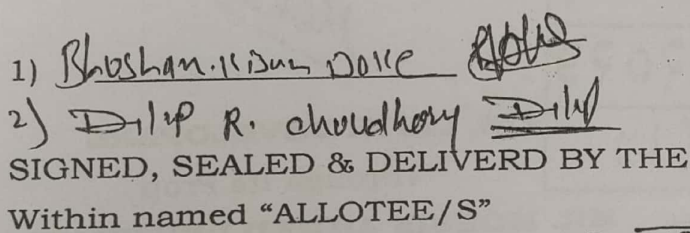 1) Bhushan. Kisun Doke
2) Dilip R. choudhory Dilip
SIGNED, SEALED & DELIVERD BY THE
Within named “ALLOTEE/S”